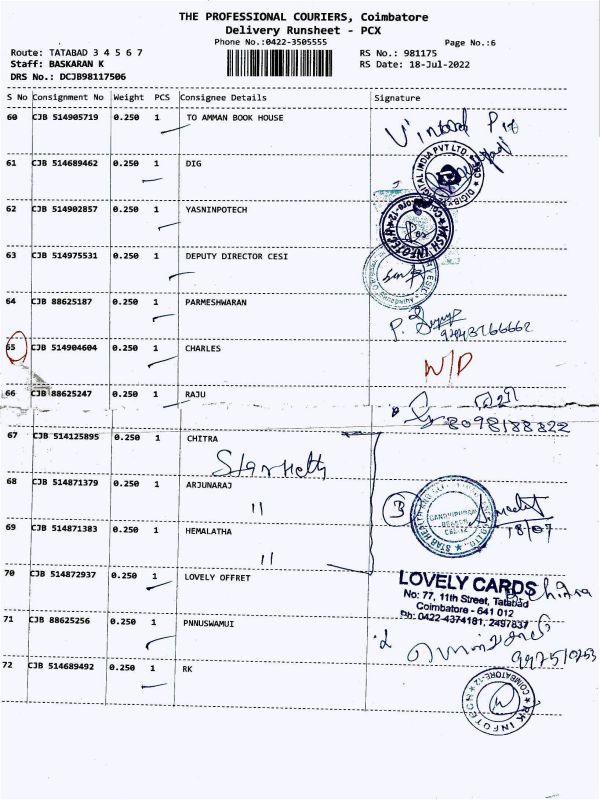 THE PROFESSIONAL COURIERS, Coimbatore
Delivery Runsheet - PCX
Phone No.:0422-3505555
Page No.:6
Route: TATABAD 3 4 5 6 7
RS No.: 981175
Staff: BASKARAN K
RS Date: 18-Jul-2022
DRS No.: DCJB98117506
S No Consignment No Weight PCS Consignee Details Signature
60 CJB 514905719 0.250 1 TO AMMAN BOOK HOUSE
61 CJB 514689462 0.250 1 DIG
62 CJB 514902857 0.250 1 YASNINPOTECH
63 CJB 514975531 0.250 1 DEPUTY DIRECTOR CESI
64 CJB 88625187 0.250 1 PARMESHWARAN
65 CJB 514904604 0.250 1 CHARLES
N/D
66 CJB 88625247 0.250 1 RAJU
8098188822
67 CJB 514125895 0.250 1 CHITRA
68 CJB 514871379 0.250 1 ARJUNARAJ
11
3
69 CJB 514871383 0.250 1 HEMALATHA
11
18/07
70 CJB 514872937 0.250 1 LOVELY OFFRET
LOVELY CARDS
No: 77, 11th Street, Tatabad
Coimbatore - 641 012
Ph: 0422-4374181, 2497837
71 CJB 88625256 0.250 1 PNNUSWAMUI
72 CJB 514689492 0.250 1 RK
RK INFOTECH COIMBATORE-12